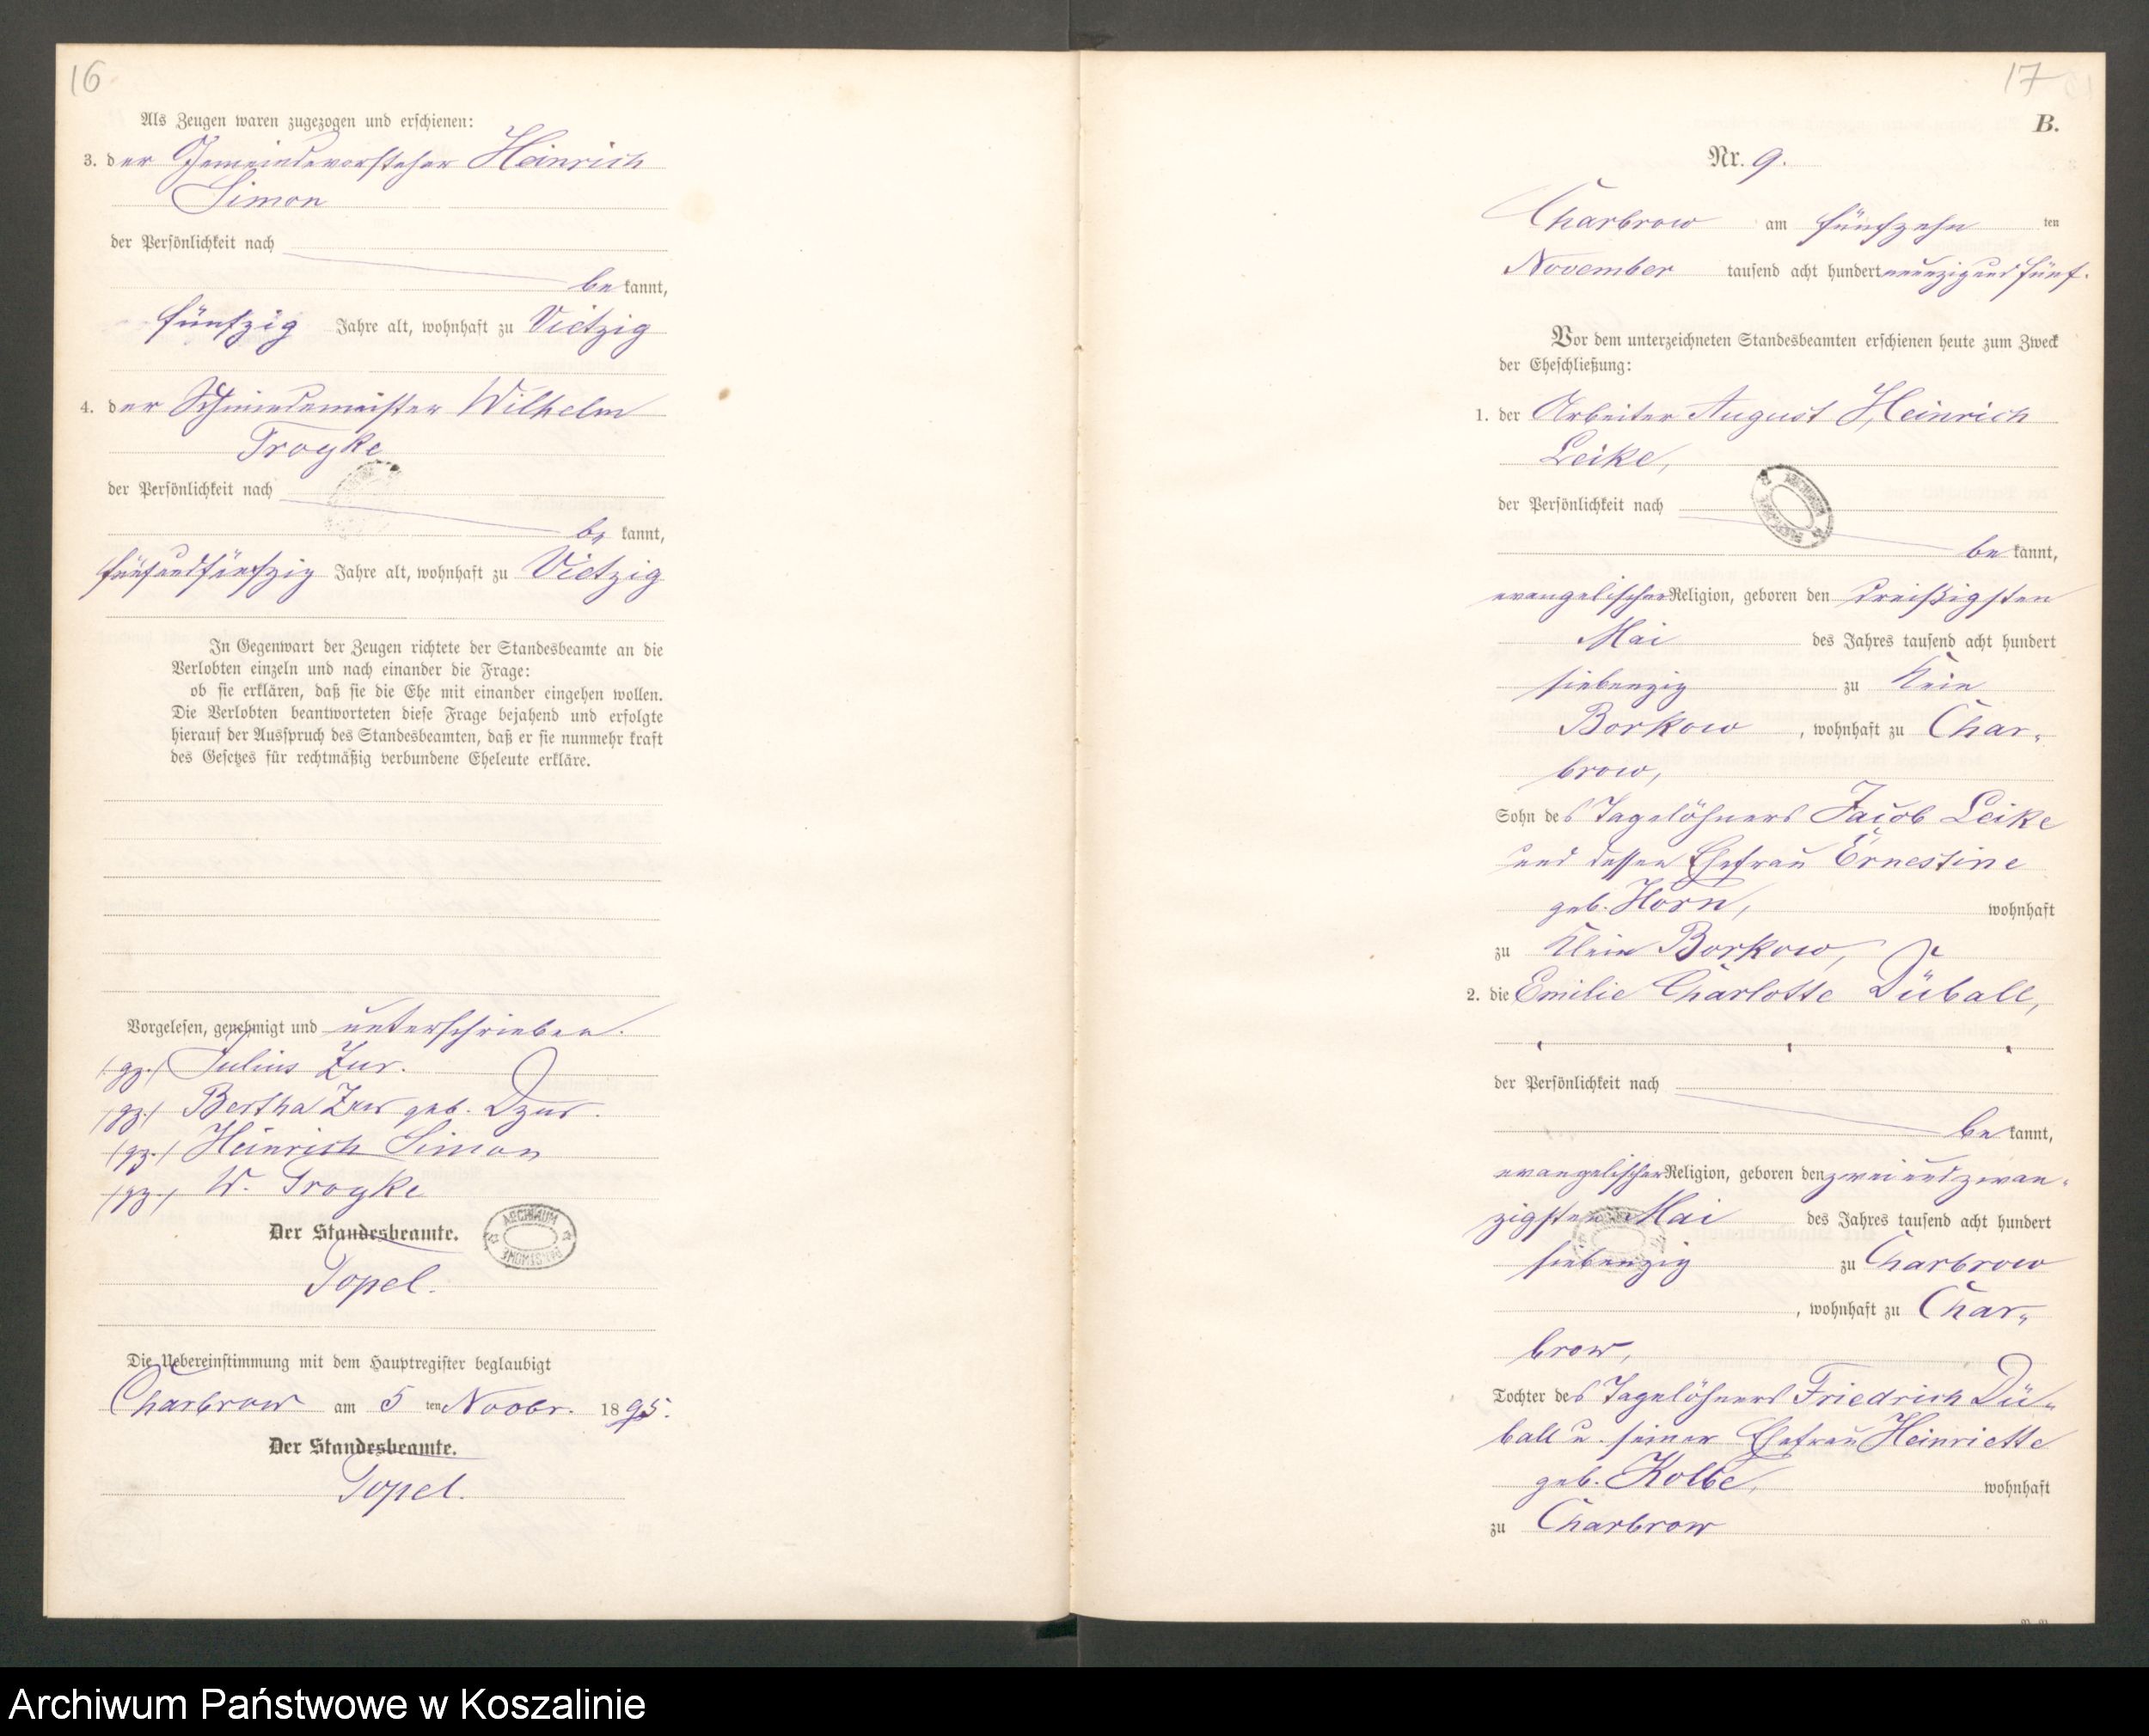 16
Als Zeugen waren zugezogen und erschienen:
3. der Gemeindevorsteher Heinrich
Simon
der Persönlichkeit nach
be kannt,
fünfzig Jahre alt, wohnhaft zu Vietzig
4. der Schmiedemeister Wilhelm
Troyke
der Persönlichkeit nach
be kannt,
fünfundfünfzig Jahre alt, wohnhaft zu Vietzig
In Gegenwart der Zeugen richtete der Standesbeamte an die
Verlobten einzeln und nach einander die Frage:
ob sie erklären, daß sie die Ehe mit einander eingehen wollen.
Die Verlobten beantworteten diese Frage bejahend und erfolgte
hierauf der Ausspruch des Standesbeamten, daß er sie nunmehr kraft
des Gesetzes für rechtmäßig verbundene Eheleute erkläre.
Vorgelesen, genehmigt und unterschrieben.
(gz.) Julius Zur.
(gz.) Bertha Zur geb. Dzur.
(gz.) Heinrich Simon
(gz.) W. Troyke
Der Standesbeamte.
Topel.
Die Uebereinstimmung mit dem Hauptregister beglaubigt
Charbrow am 5 ten Novbr. 1895.
Der Standesbeamte.
Topel.
17
B.
Nr. 9.
Charbrow am fünfzehn ten
November tausend acht hundert neunzig und fünf.
Vor dem unterzeichneten Standesbeamten erschienen heute zum Zweck
der Eheschließung:
1. der Arbeiter August Heinrich
Leike,
der Persönlichkeit nach
be kannt,
evangelischer Religion, geboren den dreißigsten
Mai des Jahres tausend acht hundert
siebenzig zu Klein
Borkow, wohnhaft zu Char-
brow,
Sohn des Tagelöhners Jacob Leike
und dessen Ehefrau Ernestine
geb. Horn, wohnhaft
zu Klein Borkow,
2. die Emilie Charlotte Düball,
der Persönlichkeit nach
be kannt,
evangelischer Religion, geboren den zweiundzwan-
zigsten Mai des Jahres tausend acht hundert
siebenzig zu Charbrow
, wohnhaft zu Char-
brow,
Tochter des Tagelöhners Friedrich Dü-
ball u. seiner Ehefrau Heinriette
geb. Kolbe, wohnhaft
zu Charbrow
Archiwum Państwowe w Koszalinie